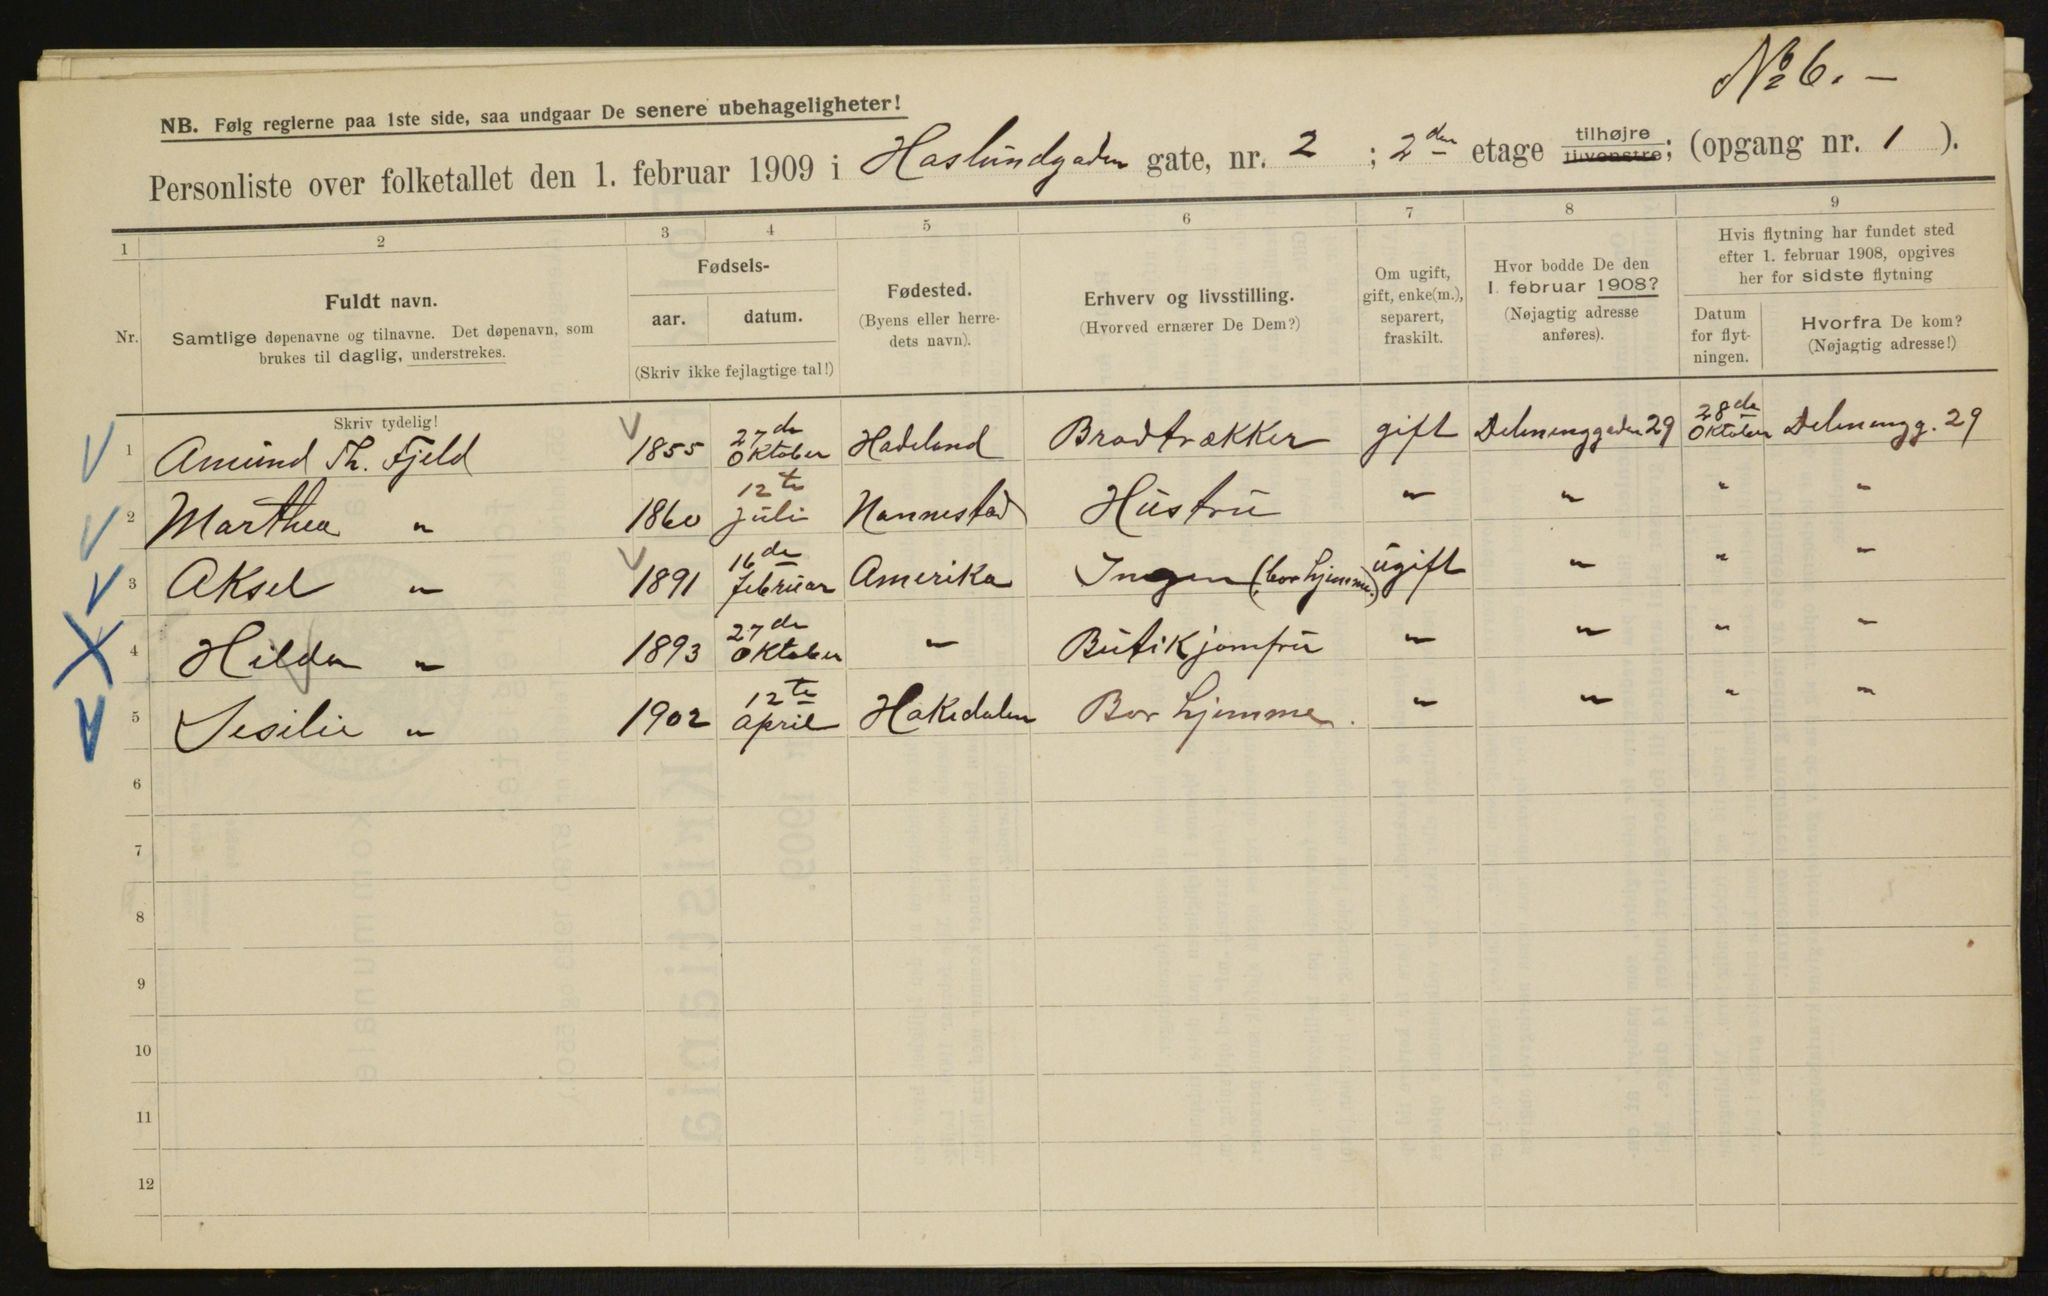 № 6. —
NB. Følg reglerne paa 1ste side, saa undgaar De senere ubehageligheter!
Personliste over folketallet den 1. februar 1909 i Haslundgaden gate, nr. 2 ; 2den etage tilhøjre tilvenstre; (opgang nr. 1 ).
1 2 3 4 5 6 7 8 9
Nr.
Fuldt navn.
Samtlige døpenavne og tilnavne. Det døpenavn, som
brukes til daglig, understrekes.
Fødsels-
aar. datum.
(Skriv ikke fejlagtige tal!)
Fødested.
(Byens eller herre-
dets navn).
Erhverv og livsstilling.
(Hvorved ernærer De Dem?)
Om ugift,
gift, enke(m.),
separert,
fraskilt.
Hvor bodde De den
1. februar 1908?
(Nøjagtig adresse
anføres).
Hvis flytning har fundet sted
efter 1. februar 1908, opgives
her for sidste flytning
Datum
for flyt-
ningen.
Hvorfra De kom?
(Nøjagtig adresse!)
Skriv tydelig!
1 Amund Th. Fjeld 1855 27de Oktober Hadeland Brodtrækker gift Delenenggaden 29 28de Oktober Delenengg. 29
2 Marthea " 1860 12te juli Nannestad Hustru " " " "
3 Aksel " 1891 16de februar Amerika Ingen (bor hjemme.) ugift " " "
4 Hilda " 1893 27de Oktober " Butikjomfru " " " "
5 Sesilie " 1902 12te april Hakedalen Bor hjemme. " " " "
6
7
8
9
10
11
12